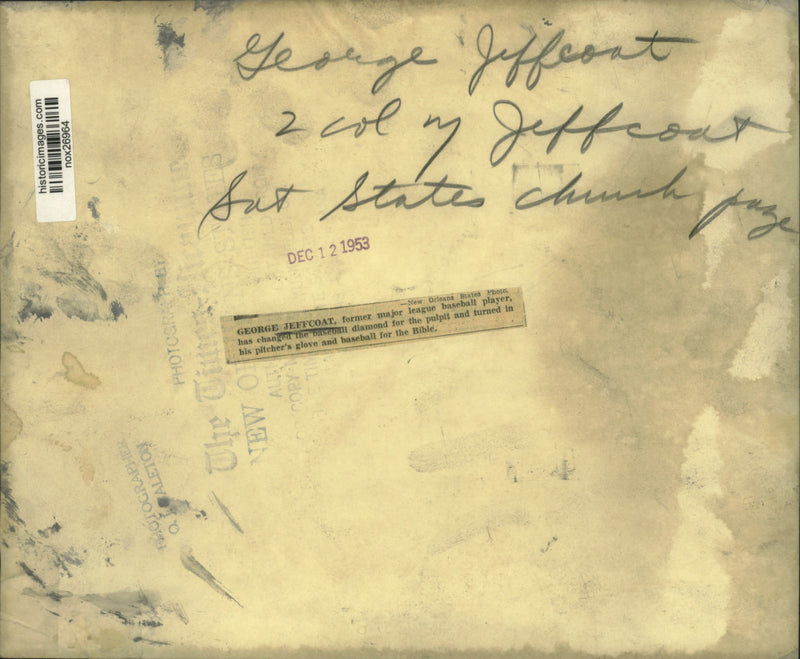 George Jeffcoat
2 col w/ Jeffcoat
Sat States church page
historicimages.com
nox26964
DEC 12 1953
—New Orleans States Photo.
GEORGE JEFFCOAT, former major league baseball player,
has changed the baseball diamond for the pulpit and turned in
his pitcher's glove and baseball for the Bible.
The Times
NEW
PHOTOGRAPHER